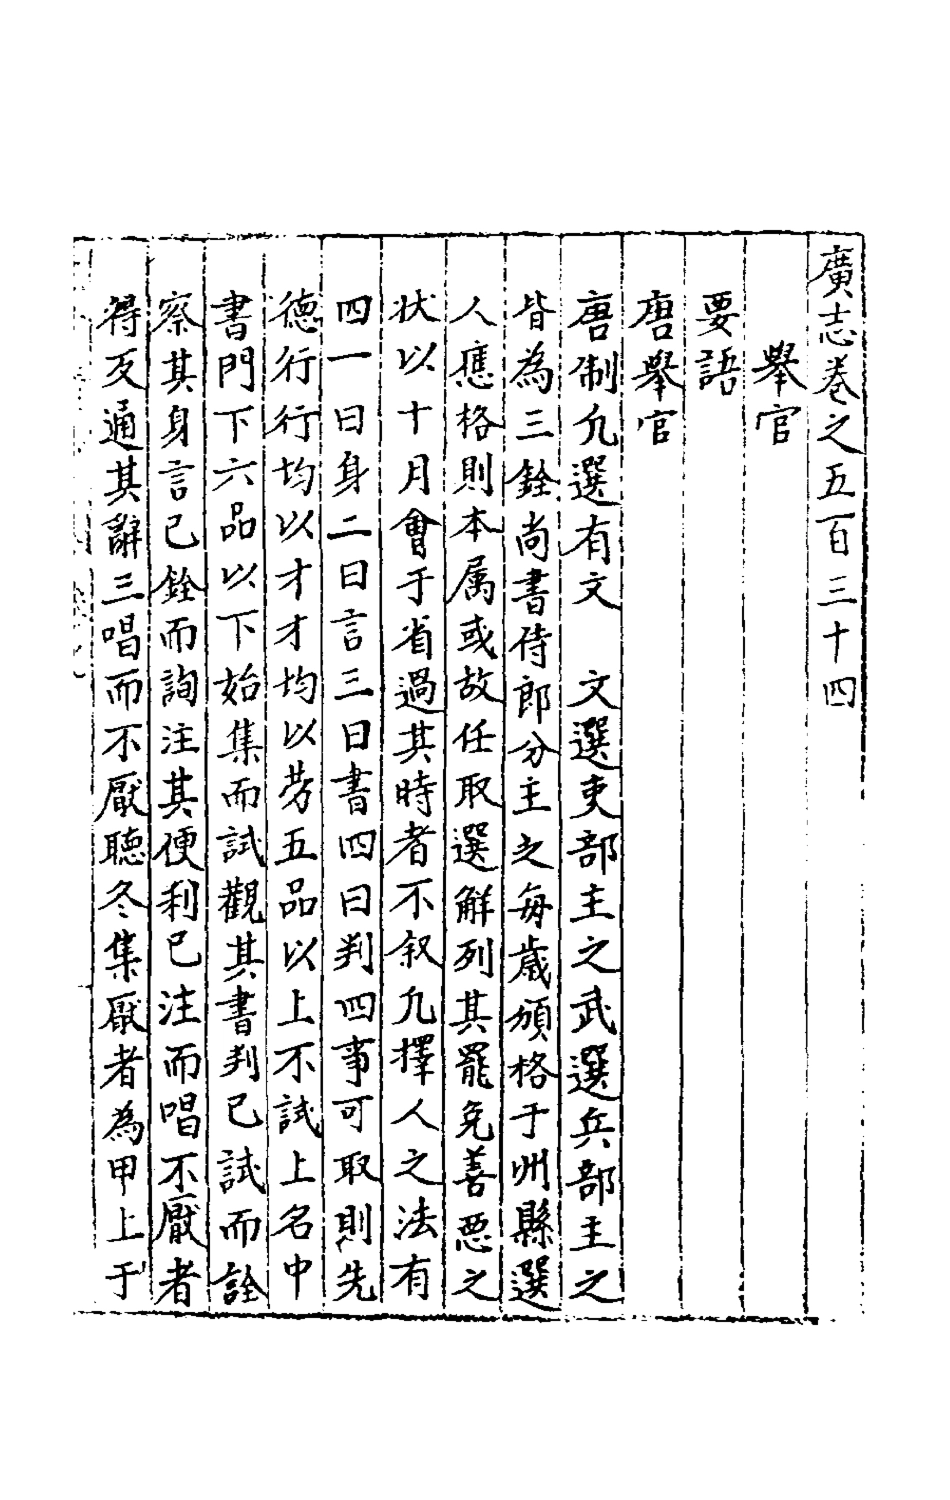 廣志卷之五百三十四
舉官
要語
唐舉官
唐制凡選有文　文選吏部主之武選兵部主之
皆為三銓尚書侍郎分主之每歲頒格于州縣選
人應格則本属或故任取選解列其罷免善惡之
狀以十月會于省過其時者不叙凡擇人之法有
四一曰身二曰言三曰書四曰判四事可取則先
德行行均以才才均以劳五品以上不試上名中
書門下六品以下始集而試觀其書判已試而詮
察其身言已銓而詢注其便利已注而唱不厭者
得反通其辭三唱而不厭聽冬集厭者為甲上于